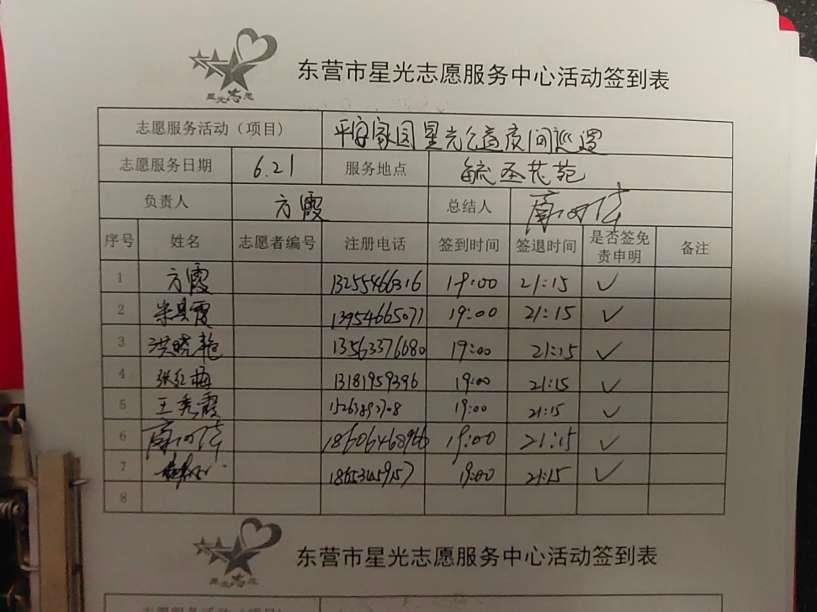 星光志愿
东营市星光志愿服务中心活动签到表
志愿服务活动（项目） 平安家园星光公益夜间巡逻
志愿服务日期 6.21 服务地点 毓圣花苑
负责人 方霞 总结人
序号 姓名 志愿者编号 注册电话 签到时间 签退时间 是否签免责申明 备注
1 方霞 13255466316 19:00 21:15 ✓
2 13954665071 19:00 21:15 ✓
3 洪晓艳 13563376680 19:00 21:15 ✓
4 张红梅 13181959396 19:00 21:15 ✓
5 王秀霞 19:00 21:15 ✓
6 18606468966 19:00 21:15 ✓
7 19:00 21:15 ✓
8
星光志愿
东营市星光志愿服务中心活动签到表
志愿服务活动（项目）